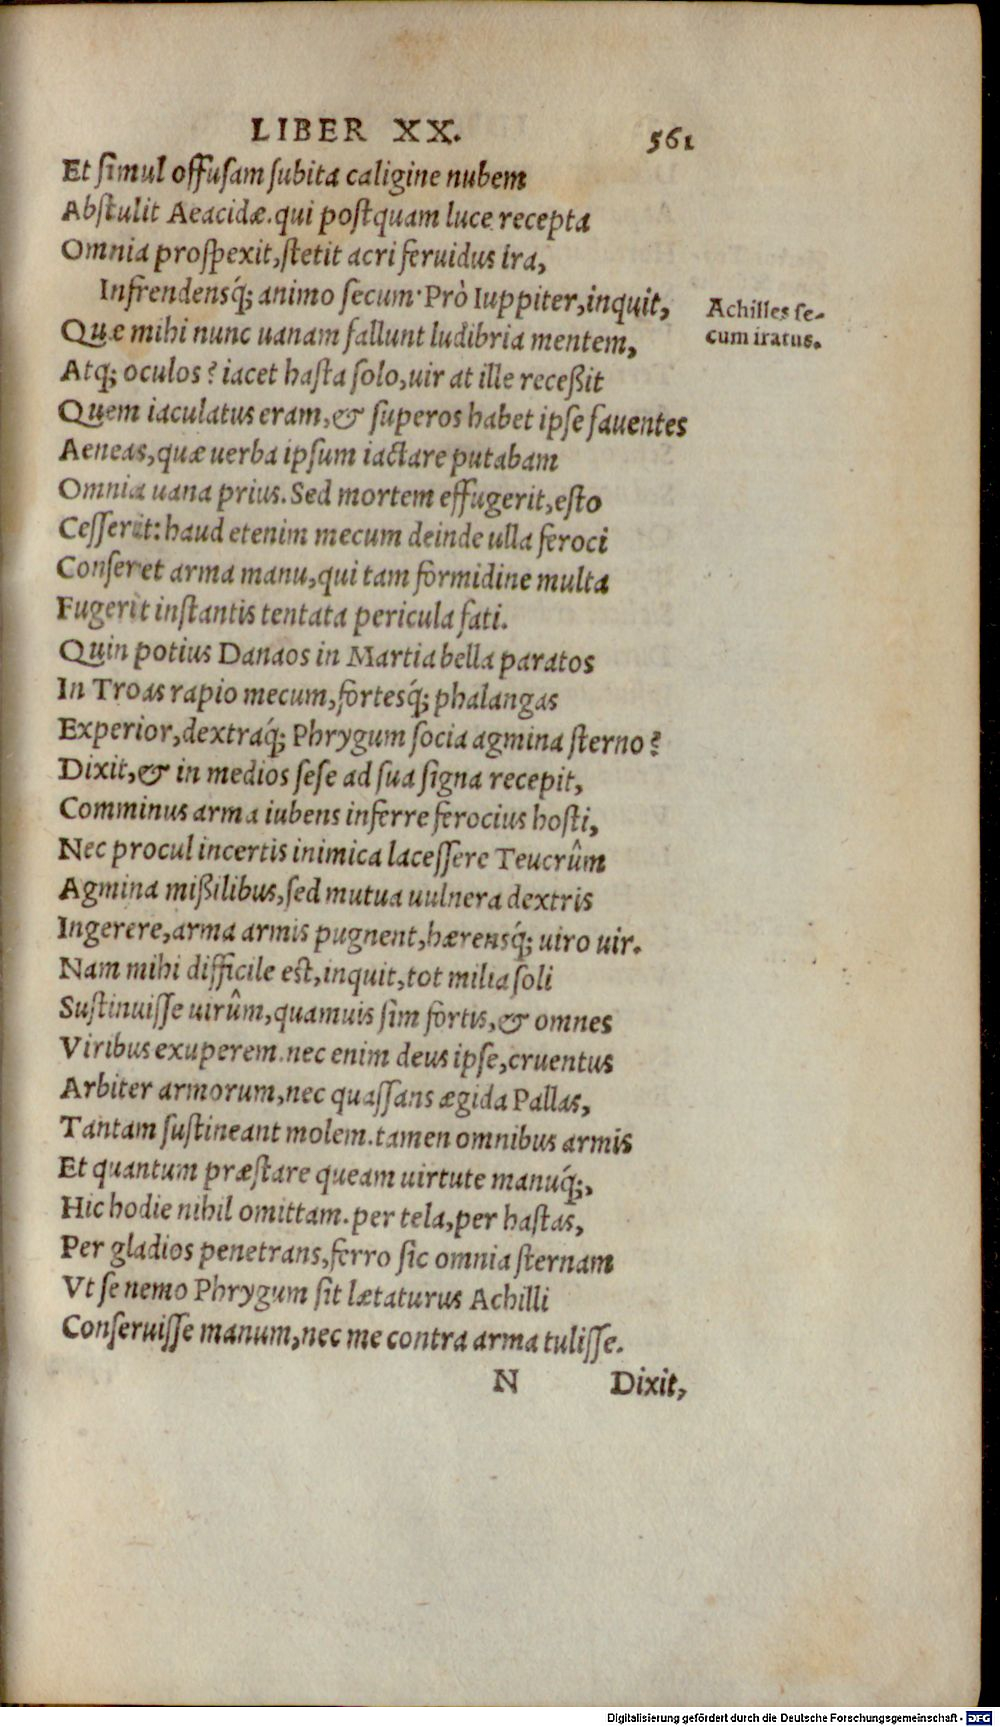 LIBER XX. 561
Et simul offusam subita caligine nubem
Abstulit Aeacidæ. qui postquam luce recepta
Omnia prospexit, stetit acri feruidus ira,
Infrendensq́; animo secum· Prò Iuppiter, inquit,
Achilles se-
cum iratus.
Quæ mihi nunc uanam fallunt ludibria mentem,
Atq; oculos? iacet hasta solo, uir at ille receßit
Quem iaculatus eram, & superos habet ipse fauentes
Aeneas, quæ uerba ipsum iactare putabam
Omnia uana prius. Sed mortem effugerit, esto
Cesserit: haud etenim mecum deinde ulla feroci
Conseret arma manu, qui tam formidine multa
Fugerit instantis tentata pericula fati.
Quin potius Danaos in Martia bella paratos
In Troas rapio mecum, fortesq́; phalangas
Experior, dextraq́; Phrygum socia agmina sterno?
Dixit, & in medios sese ad sua signa recepit,
Comminus arma iubens inferre ferocius hosti,
Nec procul incertis inimica lacessere Teucrûm
Agmina mißilibus, sed mutua uulnera dextris
Ingerere, arma armis pugnent, hærensq́; uiro uir.
Nam mihi difficile est, inquit, tot milia soli
Sustinuisse uirûm, quamuis sim fortis, & omnes
Viribus exuperem. nec enim deus ipse, cruentus
Arbiter armorum, nec quassans ægida Pallas,
Tantam sustineant molem. tamen omnibus armis
Et quantum præstare queam uirtute manuq́;,
Hic hodie nihil omittam. per tela, per hastas,
Per gladios penetrans, ferro sic omnia sternam
Vt se nemo Phrygum sit lætaturus Achilli
Conseruisse manum, nec me contra arma tulisse.
N Dixit,
Digitalisierung gefördert durch die Deutsche Forschungsgemeinschaft - DFG